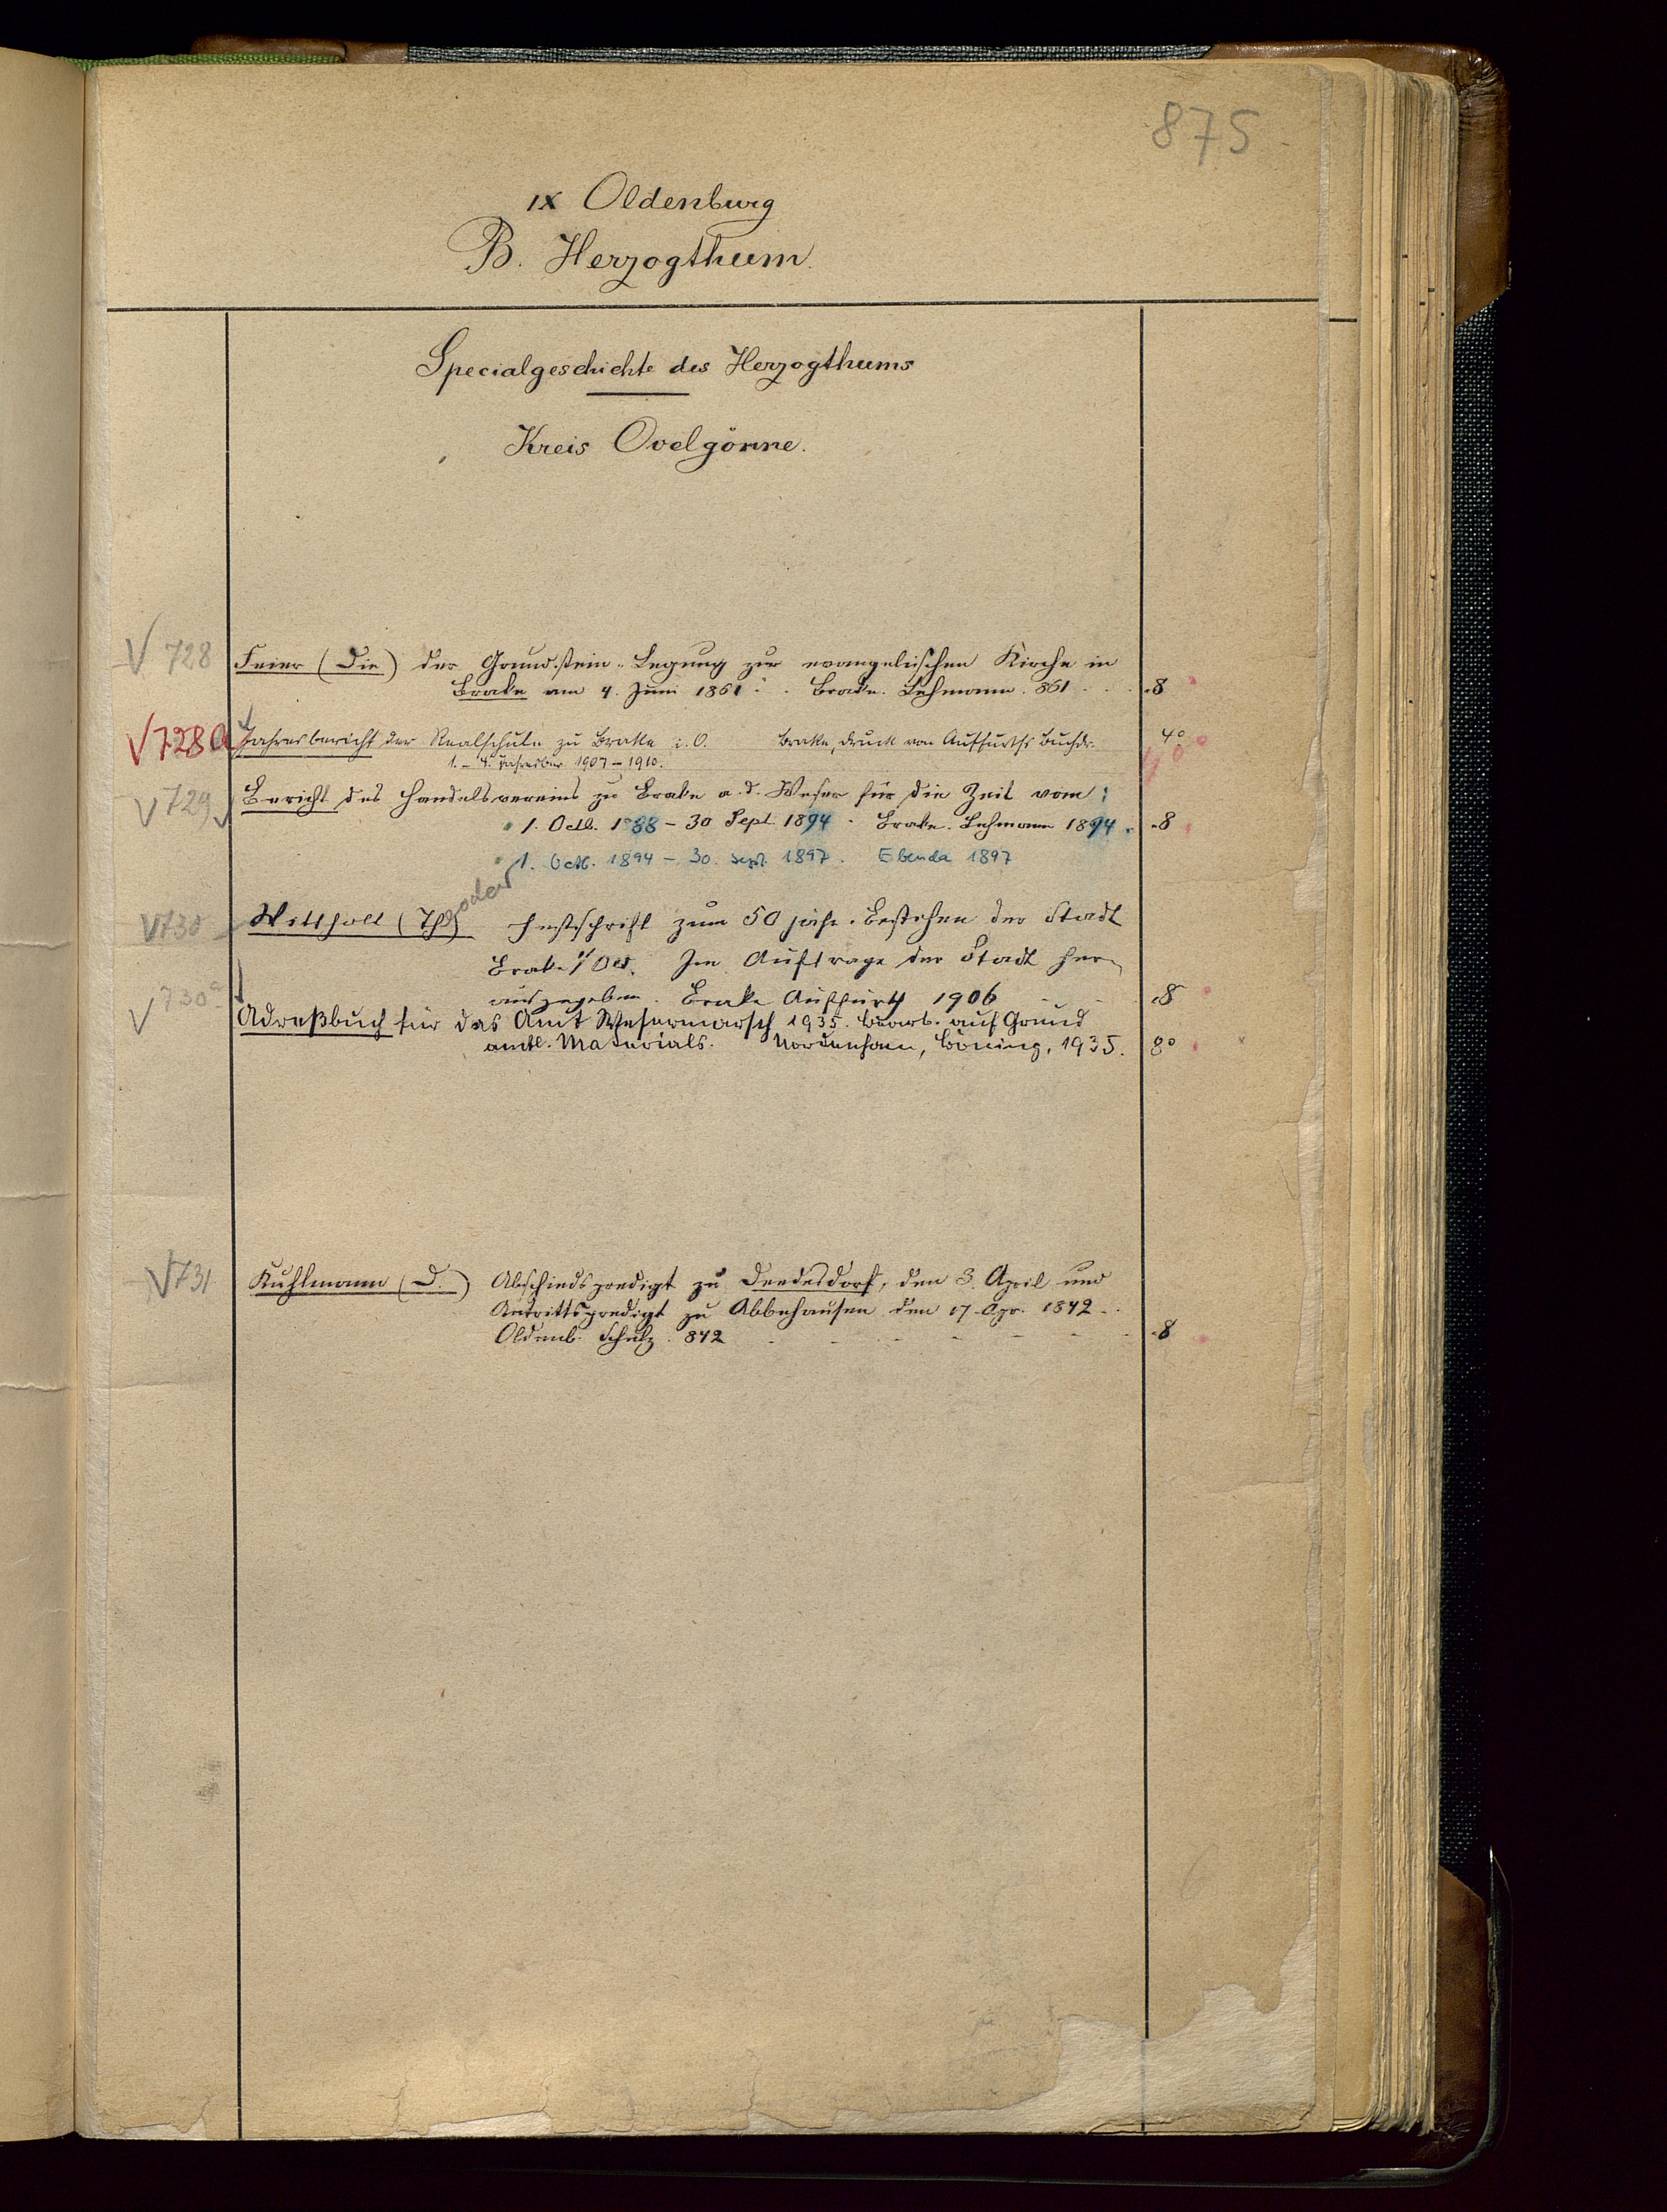 875
IX Oldenburg
B. Herzogthum.
Specialgeschichte des Herzogthums
Kreis Ovelgönne.
V 728 Feier (Die) der Grundstein-Legung zur evangelischen Kirche in
Brake am 4. Juni 1861. Brake. Lehmann. 861 . . . 8
V 728a Jahresbericht der Realschule zu Brake i. O. Brake, Druck von Auffurths Buchdr. 4°
1. - 4. 1907 - 1910. 4°
V 729 Bericht des Handelsvereins zu Brake a. d. Weser für die Zeit vom:
1. Octb. 1888 - 30 Sept. 1894. Brake. Lehmann 1894. 8
1. Octb. 1894 - 30. Sept. 1897. Ebenda 1897
V 730 Wittholl (Theodor) Festschrift zum 50 jähr. Bestehen der Stadt
Brake i/Old. Im Auftrage der Stadt her-
ausgegeben. Brake Auffurth 1906 - - 8
V 730a Adreßbuch für das Amt Wesermarsch 1935. Bearb. auf Grund
amtl. Materials. Nordenham, Böning, 1935. 8°
V 731 Kuhlmann (D.) Abschiedspredigt zu Dedesdorf, den 3. April und
Antrittspredigt zu Abbehausen den 17. Apr. 1842.
Oldenb. Schulz. 842 - - - - - - 8